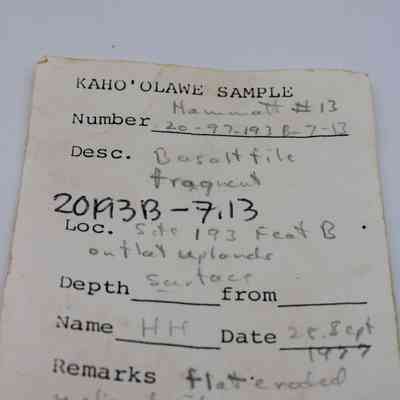 KAHO'OLAWE SAMPLE
Hammatt #13
Number 20-97-193 B-7-13
Desc. Basalt file
fragment
20193B-7.13
Loc. Site 193 Feat B
outlat uplands
Depth Surface from
Name HH Date 25 Sept
1977
Remarks flat eroded